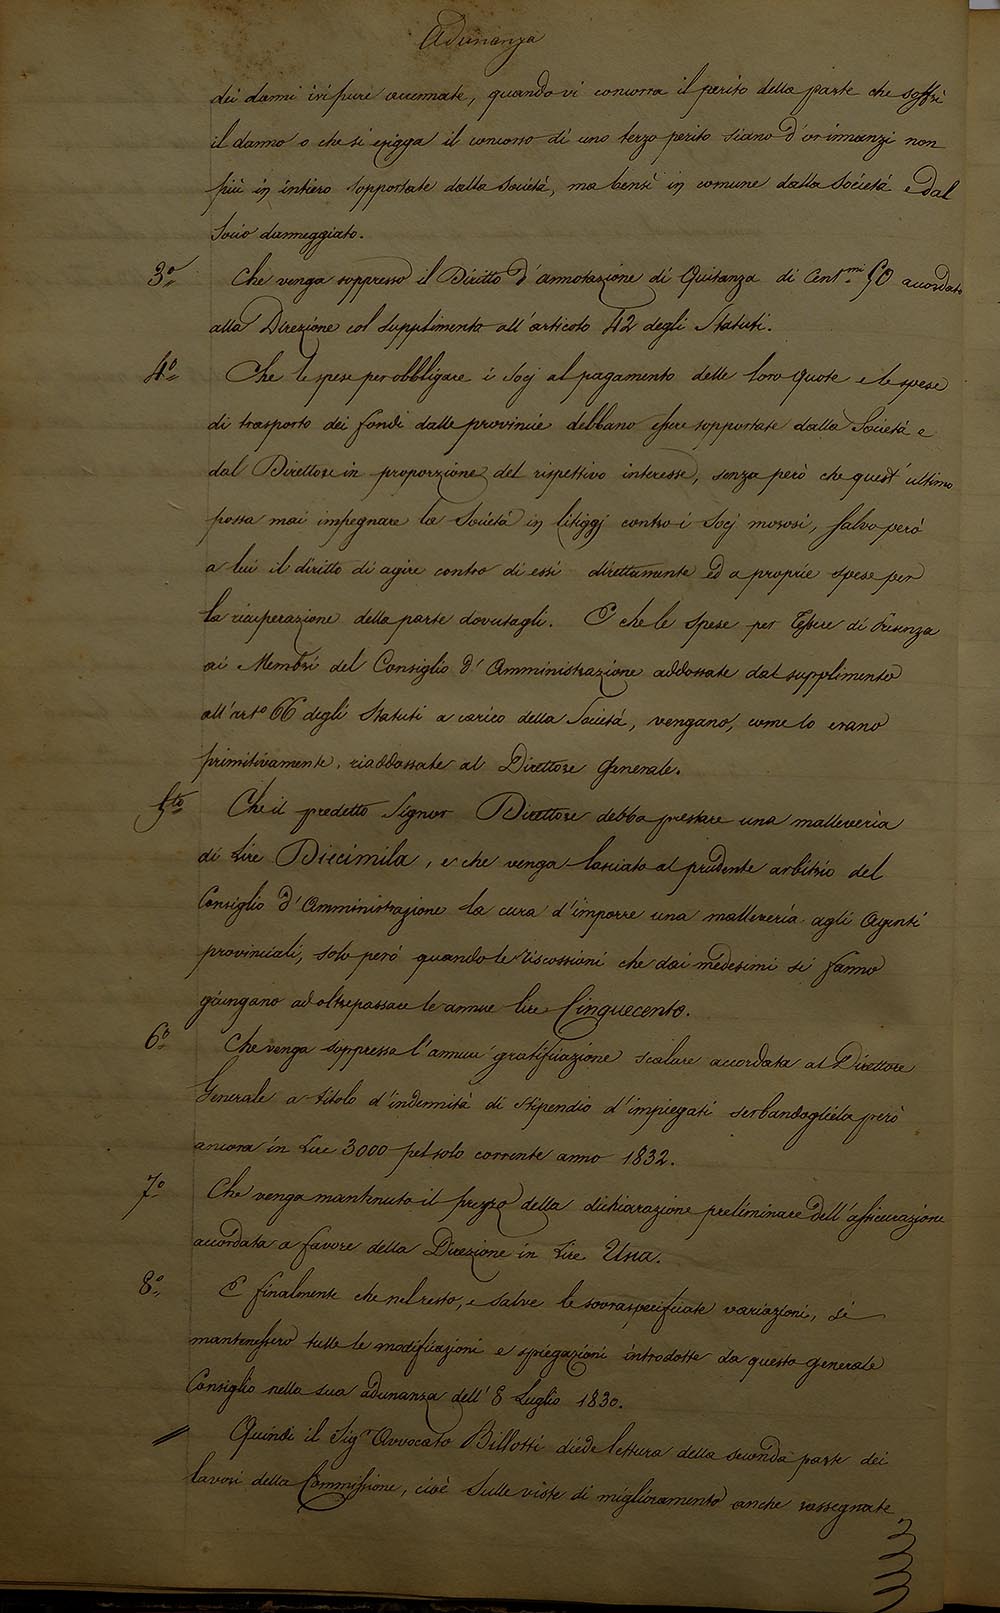 Adunanza
dei danni ivi pure accennate, quando vi concorra il perito della parte che soffrì
il danno o che si esigga il concorso di uno terzo perito siano d'orinnanzi non
più in intiero sopportate dalla Società, ma bensì in comune dalla Società e dal
Socio danneggiato.
3.o Che venga soppresso il Diritto d'annotazione di Quitanza di Cent.mi 50 accordato
alla Direzione col supplimento all'articolo 42 degli Statuti.
4.o Che le spese per obbligare i Socj al pagamento delle loro quote e le spese
di trasporto dei fondi dalle provincie debbano essere sopportate dalla Società e
dal Direttore in proporzione del rispettivo interesse, senza però che quest'ultimo
possa mai impegnare la Società in litiggj contro i Socj morosi, salvo però
a lui il diritto di agire contro di essi direttamente ed a proprie spese per
la ricuperazione della parte dovutagli. E che le spese per Tessere di Presenza
ai Membri del Consiglio d'Amministrazione addossate dal supplimento
all'art.o 66 degli Statuti a carico della Società, vengano, come lo erano
primitivamente, riaddossate al Direttore Generale.
5.to Che il predetto Signor Direttore debba prestare una malleveria
di Lire Diecimila, e che venga lasciato al prudente arbitrio del
Consiglio d'Amministrazione la cura d'imporre una malleveria agli Agenti
provinciali, solo però quando le riscossioni che dai medesimi si fanno
giungano ad oltrepassare le annue lire Cinquecento.
6.o Che venga soppressa l'annua gratificazione scalare accordata al Direttore
Generale a titolo d'indennità di stipendio d'impiegati serbandogliela però
ancora in Lire 3000 pel solo corrente anno 1832.
7.o Che venga mantenuto il prezzo della dichiarazione preliminare dell'assicurazione
accordata a favore della Direzione in Lire Una.
8.o E finalmente che nel resto, e salve le sovraspecificate variazioni, si
mantenessero tutte le modificazioni e spiegazioni introdotte da questo generale
Consiglio nella sua adunanza dell'8 Luglio 1830.
Quindi il Sig.r Avvocato Billotti diede lettura della seconda parte dei
lavori della Commissione, cioè sulle viste di miglioramento anche rassegnate